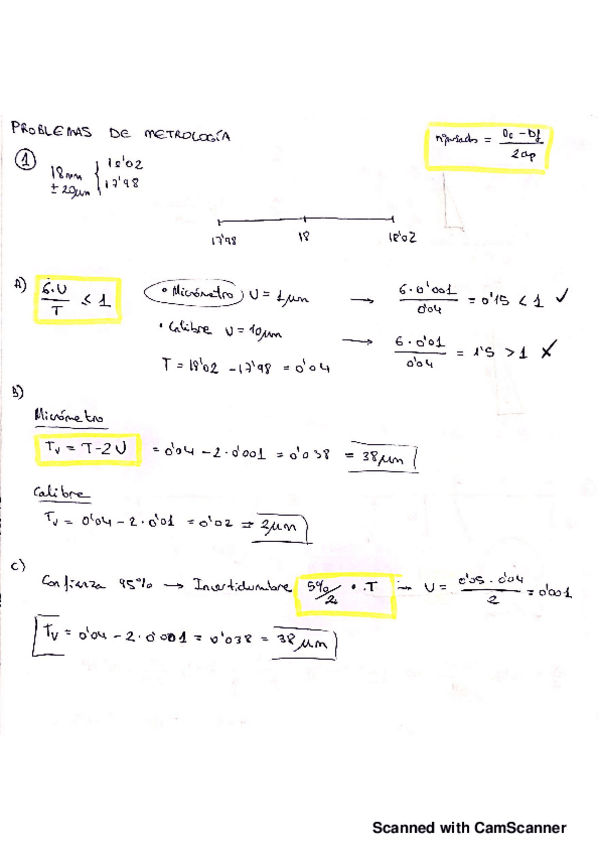 PROBLEMAS DE METROLOGÍA
npasadas = Do - Df / 2ap
① 18mm ± 20μm { 18'02 17'98
17'98 18 18'02
A) 6·U / T ≤ 1
• Micrómetro U = 1μm → 6·0'001 / 0'04 = 0'15 < 1 ✓
• Calibre U = 10μm → 6·0'01 / 0'04 = 1'5 > 1 ✗
T = 18'02 - 17'98 = 0'04
B)
Micrómetro
Tv = T - 2U = 0'04 - 2·0'001 = 0'038 = 38μm
Calibre
Tv = 0'04 - 2·0'01 = 0'02 = 2μm
C)
Confianza 95% → Incertidumbre 5% / 2 · T → U = 0'05 · 0'04 / 2 = 0'001
Tv = 0'04 - 2·0'001 = 0'038 = 38μm
Scanned with CamScanner